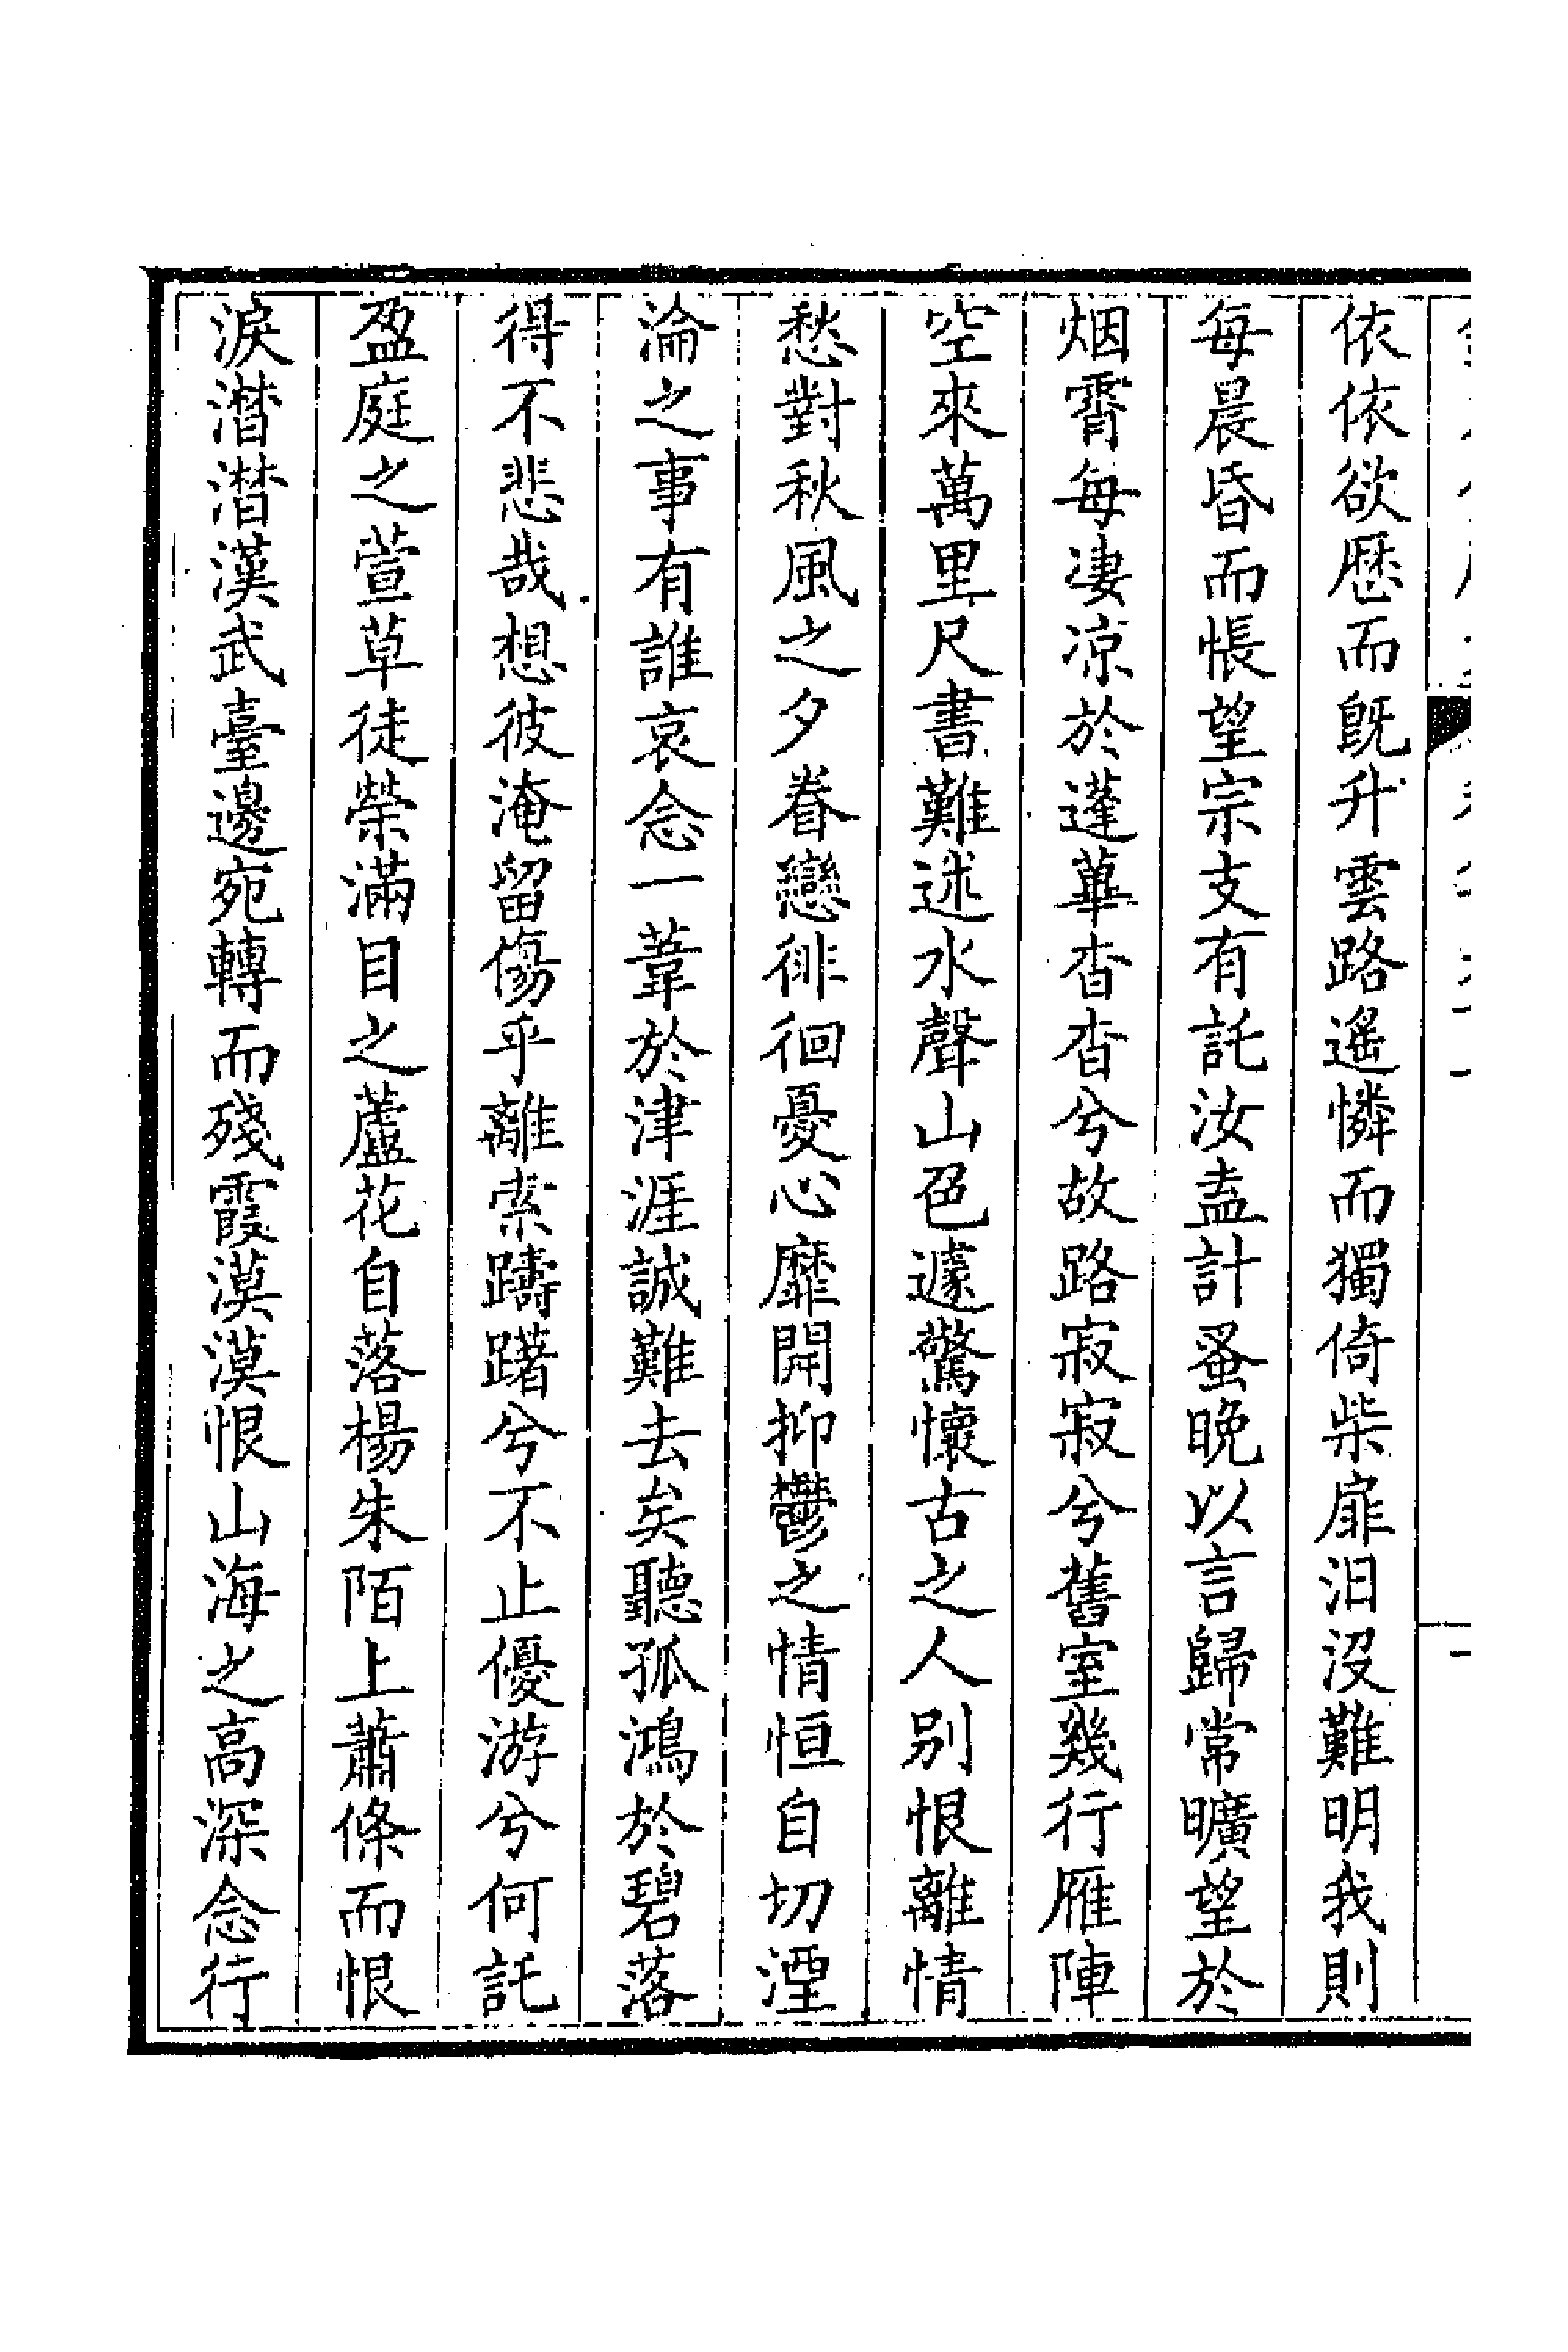 依依欲歴而旣升雲路遙憐而獨倚柴扉汨沒難明我則
每晨昏而悵望宗支有託汝盍計蚤晚以言歸常曠望於
烟霄每凄凉於蓬蓽杳杳兮故路寂寂兮舊室幾行雁陣
空來萬里尺書難述水聲山色遽驚懷古之人别恨離情
愁對秋風之夕眷戀徘徊憂心靡開抑鬱之情恒自切湮
淪之事有誰哀念一葦於津涯誠難去矣聽孤鴻於碧落
得不悲哉想彼淹留傷乎離索躊躇兮不止優游兮何託
盈庭之萱草徒榮滿目之蘆花自落楊朱陌上蕭條而恨
淚潛潛漢武臺邊宛轉而殘霞漠漠恨山海之高深念行